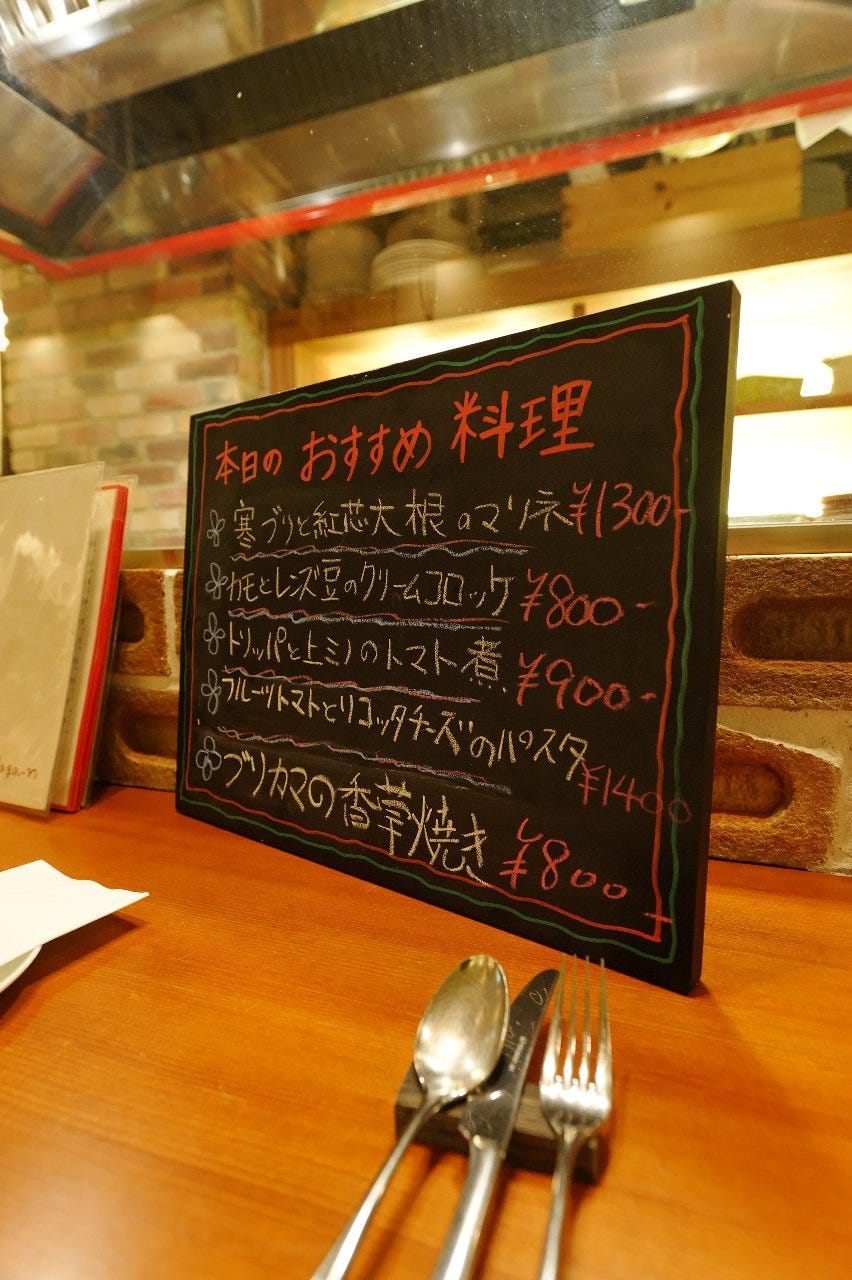 本日の おすすめ 料理
寒ブリと紅芯大根のマリネ ¥1300-
カモとレンズ豆のクリームコロッケ ¥800-
トリッパと上ミノのトマト煮 ¥900-
フルーツトマトとリコッタチーズのパスタ ¥1400
ブリカマの香草焼き ¥800